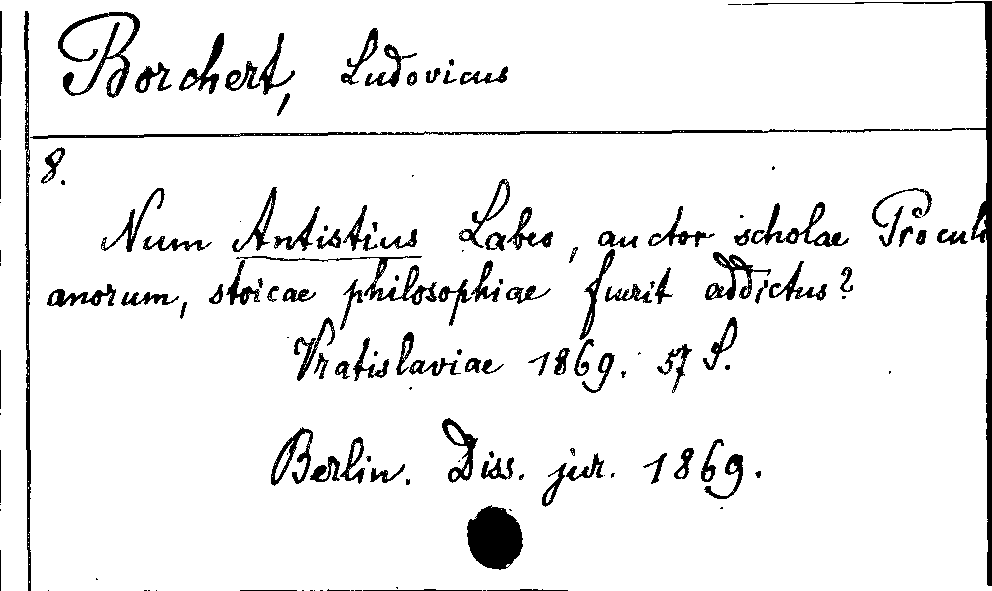 Borchert, Ludovicus
8.
Num Antistius Labeo, auctor scholae Proculi
anorum, stoicae philosophiae fuerit addictus?
Vratislaviae 1869. 57 S.
Berlin. Diss. jur. 1869.